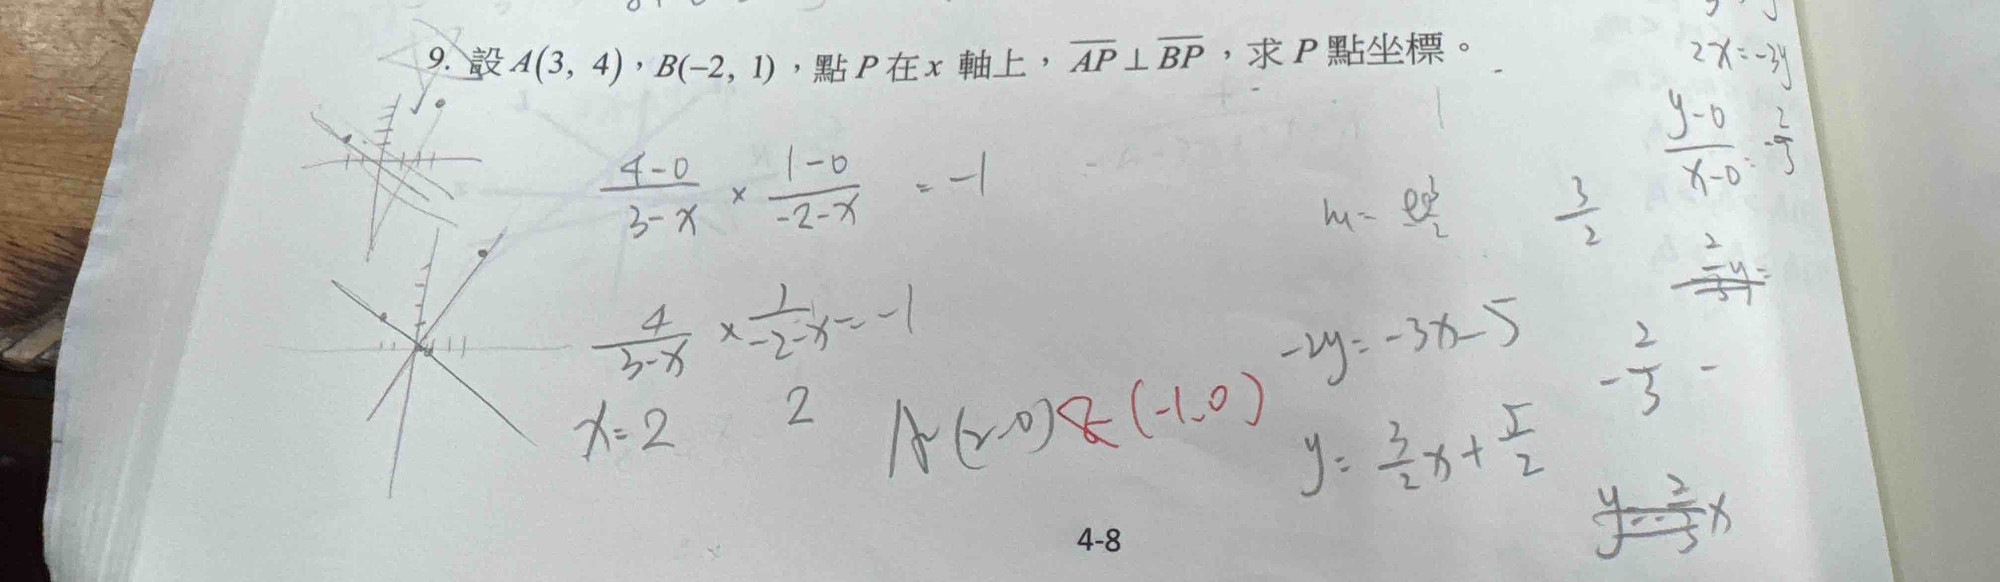 9. 設 A(3, 4)，B(−2, 1)，點 P 在 x 軸上，AP ⊥ BP，求 P 點坐標。
2x=-3y
(y-0)/(x-0) = -2/3
(4-0)/(3-x) × (1-0)/(-2-x) = -1
m=
3/2
4/(3-x) × 1/(-2-x) = -1
-2y=-3x-5
-2/3 -
x=2
2
A(2,0) & (-1,0)
y= 3/2 x + 5/2
4-8